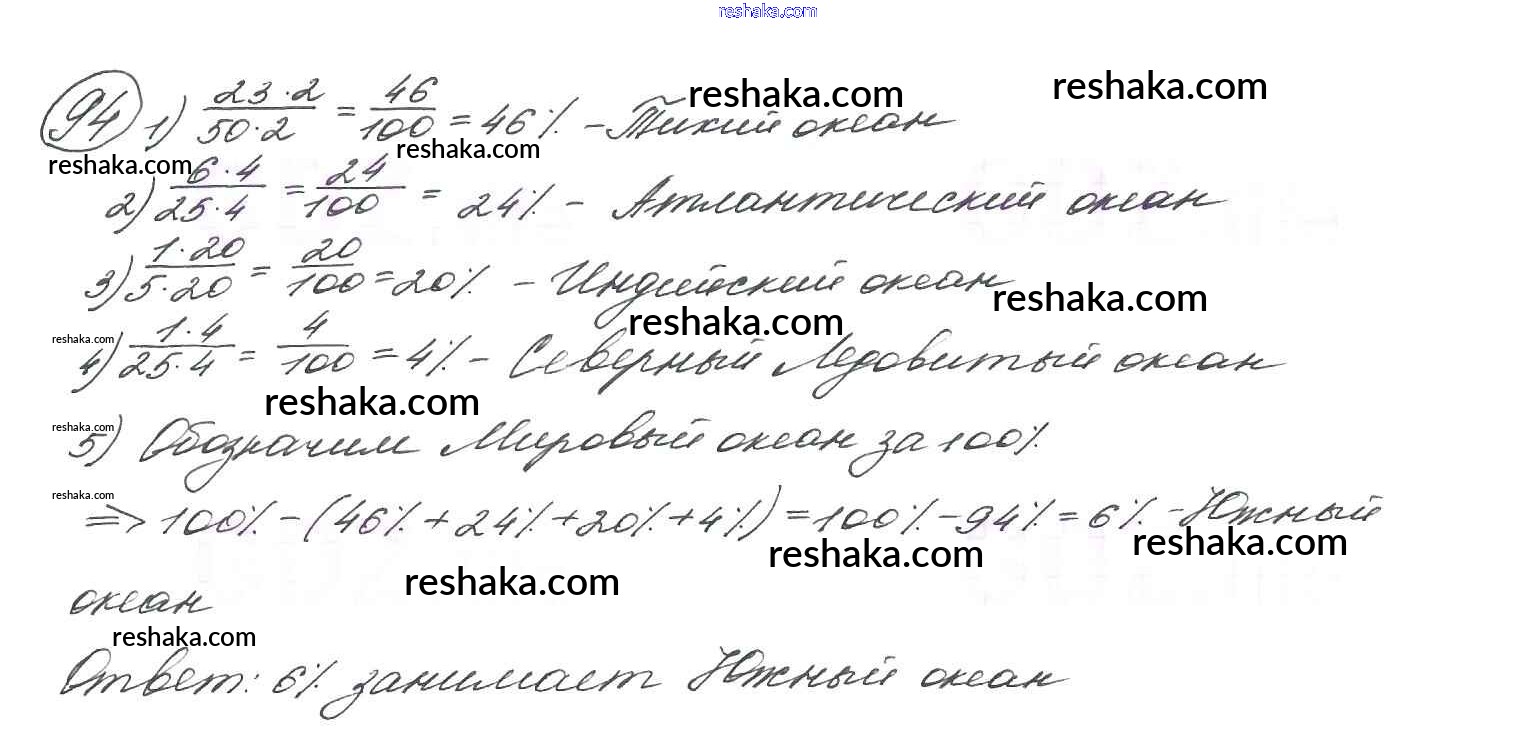 reshaka.com
94 1) 23·2/50·2 = 46/100 = 46% – Тихий океан
reshaka.com reshaka.com
reshaka.com reshaka.com
2) 6·4/25·4 = 24/100 = 24% – Атлантический океан
3) 1·20/5·20 = 20/100 = 20% – Индийский океан
reshaka.com reshaka.com
4) 1·4/25·4 = 4/100 = 4% – Северный Ледовитый океан
reshaka.com
reshaka.com
reshaka.com
5) Обозначим Мировый океан за 100%
reshaka.com
=> 100% – (46% + 24% + 20% + 4%) = 100% – 94% = 6% – Южный
reshaka.com reshaka.com
reshaka.com
океан
reshaka.com
Ответ: 6% занимает Южный океан